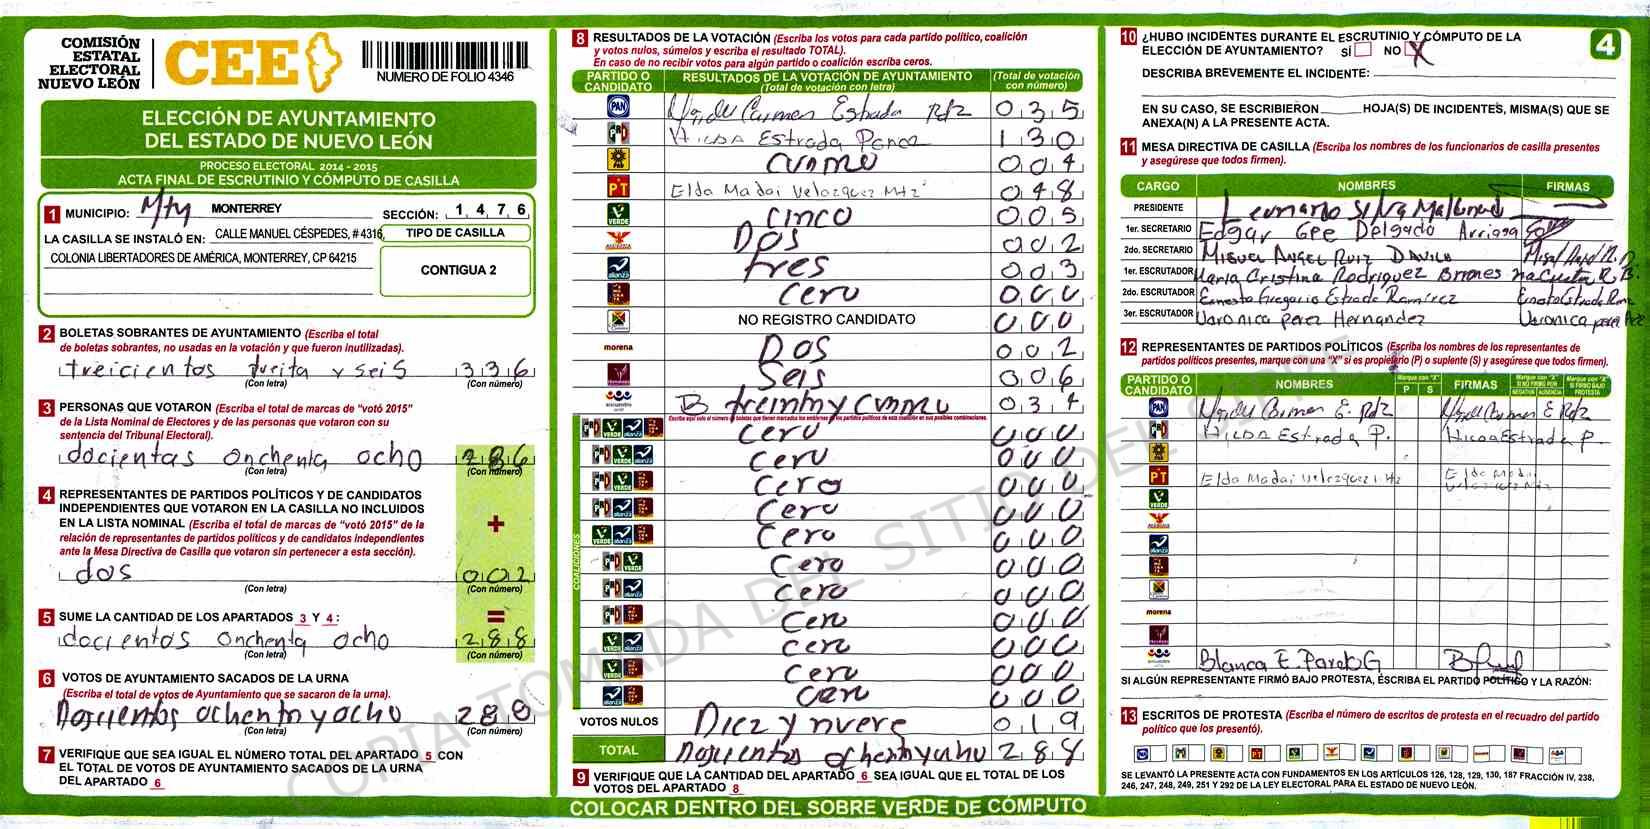 COMISIÓN
ESTATAL
ELECTORAL
NUEVO LEÓN
CEE
NUMERO DE FOLIO 4346
ELECCIÓN DE AYUNTAMIENTO
DEL ESTADO DE NUEVO LEÓN
PROCESO ELECTORAL 2014 - 2015
ACTA FINAL DE ESCRUTINIO Y CÓMPUTO DE CASILLA
1 MUNICIPIO: Mty MONTERREY SECCIÓN: 1 4 7 6
LA CASILLA SE INSTALÓ EN: CALLE MANUEL CÉSPEDES, # 4316,
COLONIA LIBERTADORES DE AMÉRICA, MONTERREY, CP 64215
TIPO DE CASILLA
CONTIGUA 2
2 BOLETAS SOBRANTES DE AYUNTAMIENTO (Escriba el total
de boletas sobrantes, no usadas en la votación y que fueron inutilizadas).
treicientos treita y seis 3 3 6
(Con letra) (Con número)
3 PERSONAS QUE VOTARON (Escriba el total de marcas de "votó 2015"
de la Lista Nominal de Electores y de las personas que votaron con su
sentencia del Tribunal Electoral).
docientas onchenta ocho 286
(Con letra) (Con número)
4 REPRESENTANTES DE PARTIDOS POLÍTICOS Y DE CANDIDATOS
INDEPENDIENTES QUE VOTARON EN LA CASILLA NO INCLUIDOS
EN LA LISTA NOMINAL (Escriba el total de marcas de "votó 2015" de la
relación de representantes de partidos políticos y de candidatos independientes
ante la Mesa Directiva de Casilla que votaron sin pertenecer a esta sección).
+
dos 0 0 2
(Con letra) (Con número)
5 SUME LA CANTIDAD DE LOS APARTADOS 3 Y 4:
=
docientos onchenta ocho 2 8 8
(Con letra) (Con número)
6 VOTOS DE AYUNTAMIENTO SACADOS DE LA URNA
(Escriba el total de votos de Ayuntamiento que se sacaron de la urna).
Doscientos ochenta y ocho 2 8 8
(Con letra) (Con número)
7 VERIFIQUE QUE SEA IGUAL EL NÚMERO TOTAL DEL APARTADO 5 CON
EL TOTAL DE VOTOS DE AYUNTAMIENTO SACADOS DE LA URNA
DEL APARTADO 6
8 RESULTADOS DE LA VOTACIÓN (Escriba los votos para cada partido político, coalición
y votos nulos, súmelos y escriba el resultado TOTAL).
En caso de no recibir votos para algún partido o coalición escriba ceros.
PARTIDO O CANDIDATO
RESULTADOS DE LA VOTACIÓN DE AYUNTAMIENTO
(Total de votación con letra)
(Total de votación con número)
PAN Ma del Carmen Estrada Rdz 0 3 5
PRD Hilda Estrada Perez 1 3 0
cuatro 0 0 4
PT Elda Madai Velazquez Mtz 0 4 8
VERDE cinco 0 0 5
Dos 0 0 2
alianza tres 0 0 3
cero 0 0 0
NO REGISTRO CANDIDATO 0 0 0
morena Dos 0 0 2
Seis 0 0 6
encuentro social treinta y cuatro 0 3 4
COALICIONES
cero 0 0 0
cero 0 0 0
cero 0 0 0
cero 0 0 0
cero 0 0 0
cero 0 0 0
cero 0 0 0
cero 0 0 0
cero 0 0 0
cero 0 0 0
cero 0 0 0
VOTOS NULOS Diez y nueve 0 1 9
TOTAL Doscientos ochenta y ocho 2 8 8
9 VERIFIQUE QUE LA CANTIDAD DEL APARTADO 6 SEA IGUAL QUE EL TOTAL DE LOS
VOTOS DEL APARTADO 8
COLOCAR DENTRO DEL SOBRE VERDE DE CÓMPUTO
4
10 ¿HUBO INCIDENTES DURANTE EL ESCRUTINIO Y CÓMPUTO DE LA
ELECCIÓN DE AYUNTAMIENTO? SÍ NO X
DESCRIBA BREVEMENTE EL INCIDENTE:
EN SU CASO, SE ESCRIBIERON HOJA(S) DE INCIDENTES, MISMA(S) QUE SE
ANEXA(N) A LA PRESENTE ACTA.
11 MESA DIRECTIVA DE CASILLA (Escriba los nombres de los funcionarios de casilla presentes
y asegúrese que todos firmen).
CARGO NOMBRES FIRMAS
PRESIDENTE Leonardo Silva Maldonado
1er. SECRETARIO Edgar Gpe Delgado Arriaga
2do. SECRETARIO Miguel Angel Ruiz Davila
1er. ESCRUTADOR Maria Cristina Rodriguez Briones
2do. ESCRUTADOR Ernesto Gregorio Estrada Ramírez
3er. ESCRUTADOR Veronica perez Hernandez
12 REPRESENTANTES DE PARTIDOS POLÍTICOS (Escriba los nombres de los representantes de
partidos políticos presentes, marque con una "X" si es propietario (P) o suplente (S) y asegúrese que todos firmen).
PARTIDO O CANDIDATO NOMBRES P S FIRMAS
PAN Ma del Carmen E. Rdz Ma del Carmen E Rdz
Hilda Estrada P. Hilda Estrada P.
PT Elda Madai Velazquez Mtz Elda Madai Velazquez Mtz
VERDE
alianza
morena
Blanca E. Pardo G
SI ALGÚN REPRESENTANTE FIRMÓ BAJO PROTESTA, ESCRIBA EL PARTIDO POLÍTICO Y LA RAZÓN:
13 ESCRITOS DE PROTESTA (Escriba el número de escritos de protesta en el recuadro del partido
político que los presentó).
SE LEVANTÓ LA PRESENTE ACTA CON FUNDAMENTOS EN LOS ARTÍCULOS 126, 128, 129, 130, 187 FRACCIÓN IV, 238,
246, 247, 248, 249, 251 Y 292 DE LA LEY ELECTORAL PARA EL ESTADO DE NUEVO LEÓN.
COPIA TOMADA DEL SITIO DEL SIPRE